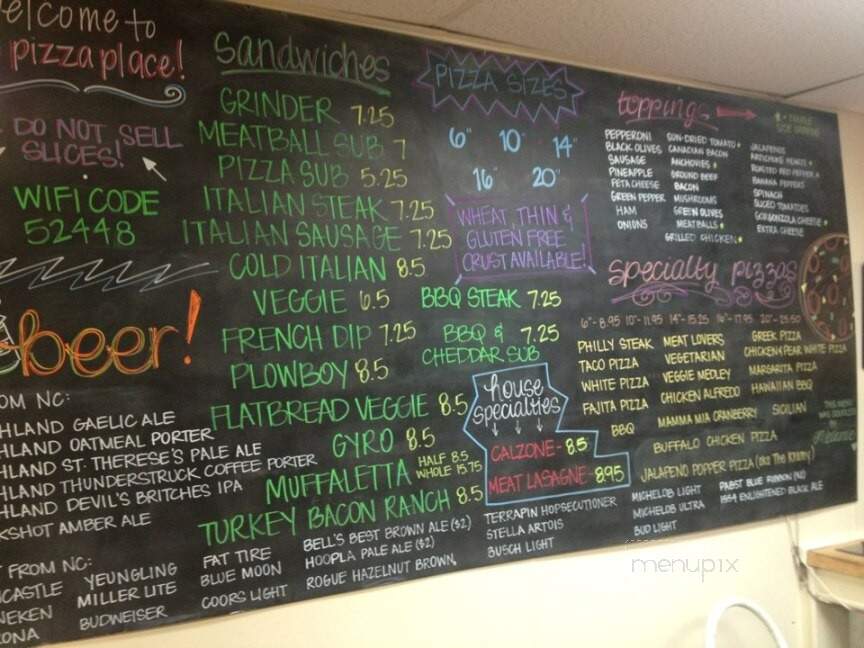 elcome to
pizza place!
DO NOT SELL
SLICES!
WIFI CODE
52448
beer!
OM NC:
HLAND GAELIC ALE
HLAND OATMEAL PORTER
HLAND ST. THERESE'S PALE ALE
HLAND THUNDERSTRUCK COFFEE PORTER
HLAND DEVIL'S BRITCHES IPA
KSHOT AMBER ALE
FROM NC:
CASTLE
NEKEN
ONA
YEUNGLING
MILLER LITE
BUDWEISER
FAT TIRE
BLUE MOON
COORS LIGHT
BELL'S BEST BROWN ALE ($2)
HOOPLA PALE ALE ($2)
ROGUE HAZELNUT BROWN
TERRAPIN HOPSECUTIONER
STELLA ARTOIS
BUSCH LIGHT
MICHELOB LIGHT
MICHELOB ULTRA
BUD LIGHT
PABST BLUE RIBBON
1554 ENLIGHTENED BLACK ALE
sandwiches
GRINDER 7.25
MEATBALL SUB 7
PIZZA SUB 5.25
ITALIAN STEAK 7.25
ITALIAN SAUSAGE 7.25
COLD ITALIAN 8.5
VEGGIE 6.5
FRENCH DIP 7.25
PLOWBOY 8.5
FLATBREAD VEGGIE 8.5
GYRO 8.5
MUFFALETTA HALF 8.5
WHOLE 15.75
TURKEY BACON RANCH 8.5
BBQ STEAK 7.25
BBQ & 7.25
CHEDDAR SUB
PIZZA SIZES
6" 10" 14"
16" 20"
WHEAT, THIN &
GLUTEN FREE
CRUST AVAILABLE!
house
specialties
CALZONE - 8.5
MEAT LASAGNE - 8.95
toppings
PEPPERONI
BLACK OLIVES
SAUSAGE
PINEAPPLE
FETA CHEESE
GREEN PEPPER
HAM
ONIONS
SUN-DRIED TOMATO
CANADIAN BACON
ANCHOVIES
GROUND BEEF
BACON
MUSHROOMS
GREEN OLIVES
MEATBALLS
GRILLED CHICKEN
JALAPENOS
ARTICHOKE HEARTS
ROASTED RED PEPPER
BANANA PEPPERS
SPINACH
SLICED TOMATOES
GORGONZOLA CHEESE
EXTRA CHEESE
specialty pizzas
6"-8.95 10"-11.95 14"-15.25 16"-17.95 20"-23.50
PHILLY STEAK
TACO PIZZA
WHITE PIZZA
FAJITA PIZZA
BBQ
MEAT LOVERS
VEGETARIAN
VEGGIE MEDLEY
CHICKEN ALFREDO
MAMMA MIA CRANBERRY
GREEK PIZZA
CHICKEN & PEAR WHITE PIZZA
MARGARITA PIZZA
HAWAIIAN BBQ
SICILIAN
BUFFALO CHICKEN PIZZA
JALAPENO POPPER PIZZA (aka The Kenny)
THIS MENU
menupix